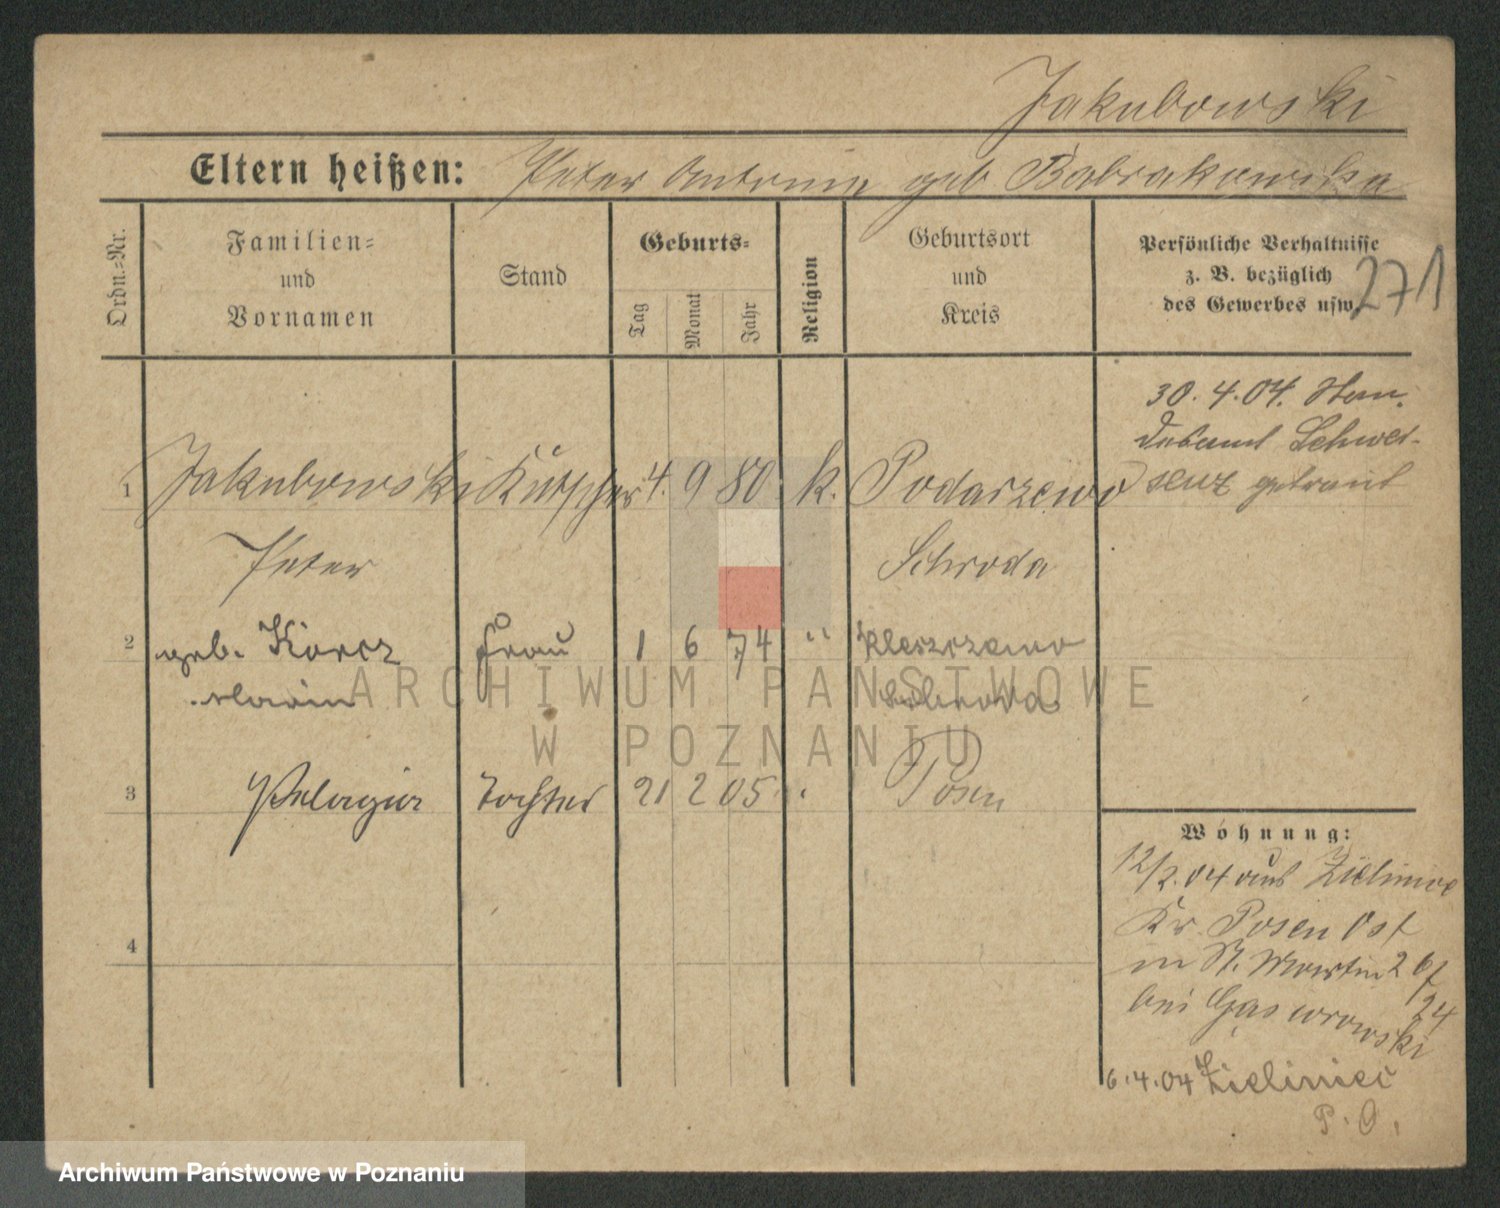 Jakubowski
Eltern heißen: Peter Antonie geb Babrakowska
Ordn.=Nr.
Familien=
und
Vornamen
Stand
Geburts=
Tag
Monat
Jahr
Religion
Geburtsort
und
Kreis
Persönliche Verhaltnisse
z. B. bezüglich
des Gewerbes usw.
271
30. 4. 04. Stan.
desamt Schwer-
senz getraut
1 Jakubowski Kutscher 4. 9 80 k. Podarzewo
Peter Schroda
2 geb. Korcz Frau 1 6 74 " Kleszczewo
Marie Schroda
3 Pelagia Tochter 21 2 05 . Posen
4
Wohnung:
12/2. 04 aus Zieliniec
Kr. Posen Ost
in St. Martin 26/
bei Gąsiorowski
24
6.4.04 Zieliniec
P. O.
ARCHIWUM PAŃSTWOWE
W POZNANIU
Archiwum Państwowe w Poznaniu